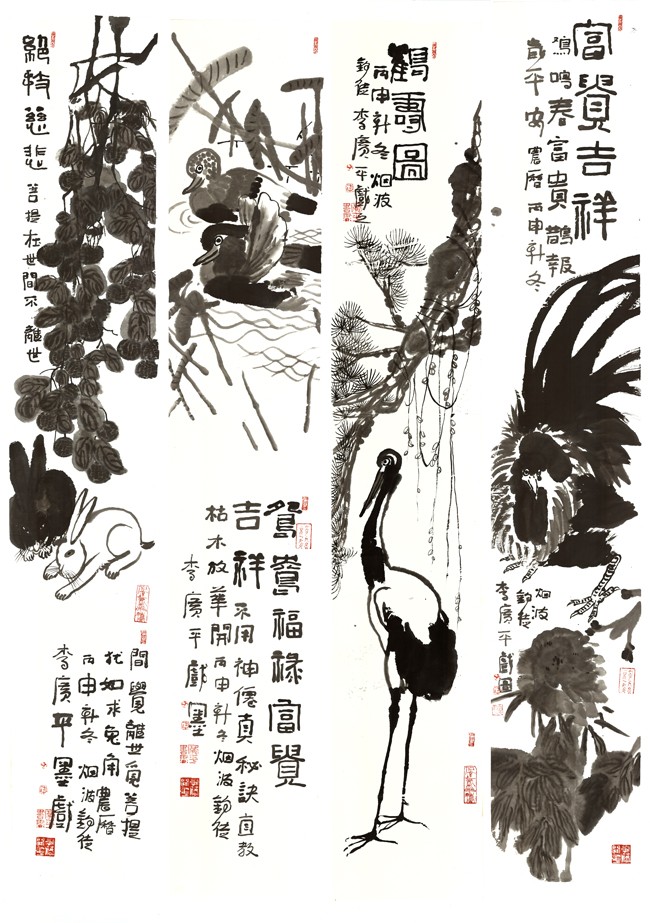 富貴吉祥
鳴春富貴鵲報
歲平安農曆丙申冬
烟波
釣徒
李廣平戲圖
鶴壽圖
丙申冬烟波
釣徒李廣平戲之
鴛鴦福祿富貴
吉祥不用神僊真秘訣直教
枯木放華開丙申冬烟波釣徒
李廣平戲墨
絕特慈悲菩提在世間不離世
間覺離世覓菩提
犹如求兔角農曆
丙申冬烟波釣徒
李廣平墨戲